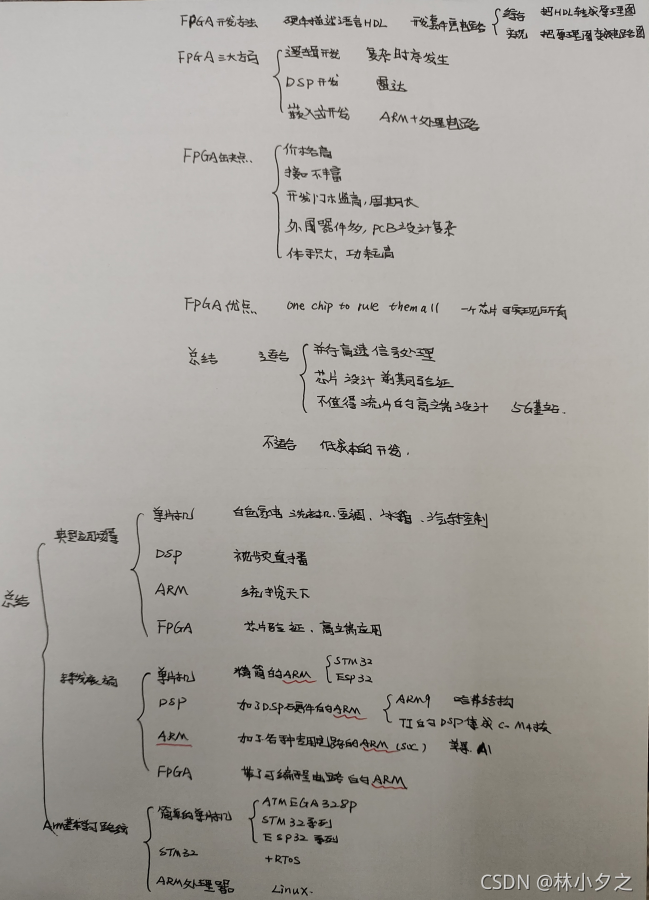 FPGA开发方法 硬件描述语言HDL 开发套件画电路 综合 把HDL转成原理图
实现 把原理图变成电路图
FPGA三大方向 逻辑开发 复杂时序发生
DSP开发 雷达
嵌入式开发 ARM+处理电路
FPGA缺点 价格高
接口不丰富
开发门槛高,周期长
外围器件多,PCB设计复杂
体积大、功耗高
FPGA优点 one chip to rule them all 一个芯片可实现所有
总结 适合 并行高速信号处理
芯片设计前期验证
不值得流片的高端设计 5G基站.
不适合 低成本的开发.
总结
典型应用场景 单片机 白色家电 洗衣机、空调、冰箱、汽车控制
DSP 视频直播
ARM 统揽天下
FPGA 芯片验证、高端应用
单片机 精简的ARM STM32
ESP32
DSP 加了DSP硬件的ARM ARM9 哈弗结构
TI的DSP集成C-M4核
ARM 加了各种专用电路的ARM(SOC) 苹果A1
FPGA 带了可编程电路的ARM
Arm基本学习路线 简单的单片机 ATMEGA328P
STM32系列
ESP32系列
STM32 +RTOS
ARM处理器 Linux.
CSDN @林小夕之